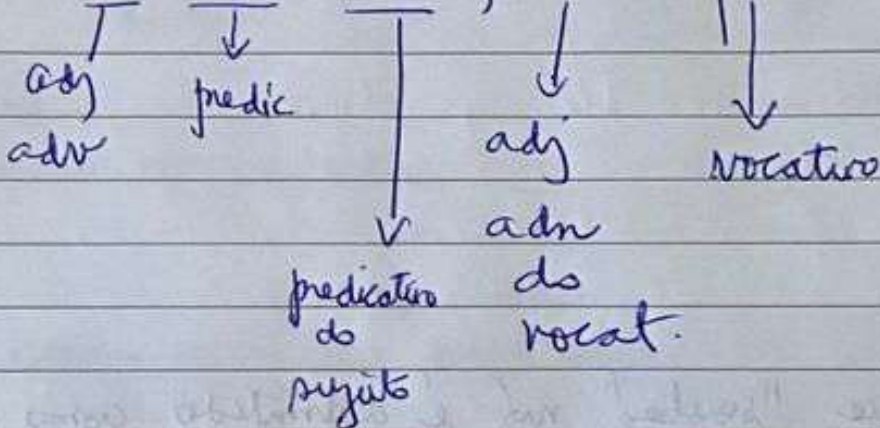 adj
adv
predic
predicativo
do
sujeito
adj
adn
do
vocat.
vocativo